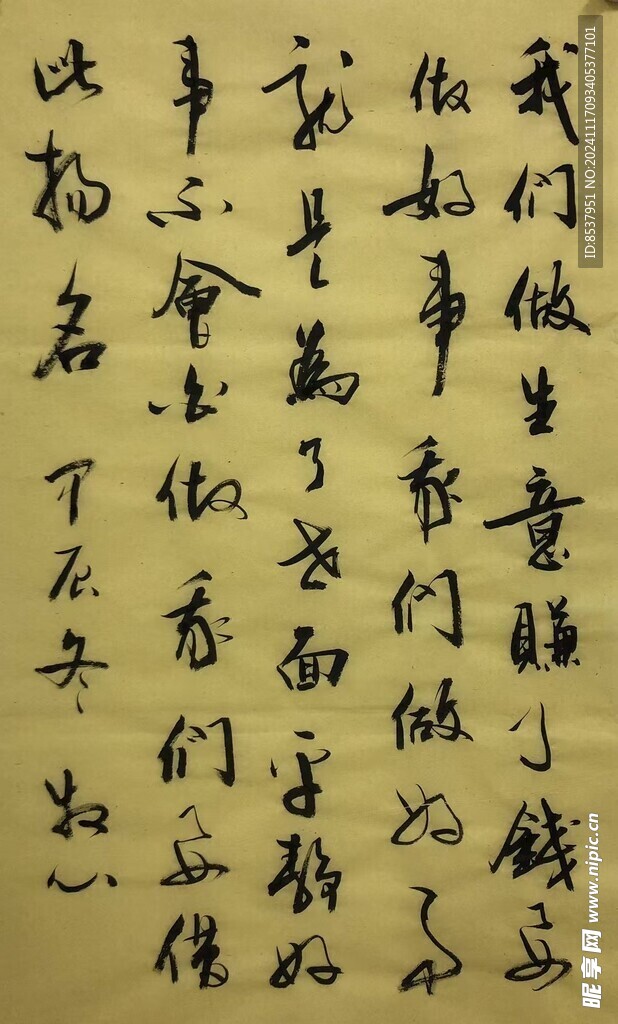 我們做生意賺了錢要
做好事我們做好事
就是為了世面平靜好
事不會白做我們要借
此揚名 甲辰冬 牧心
ID:8537951 NO:20241117093405377101
昵享网 www.nipic.cn